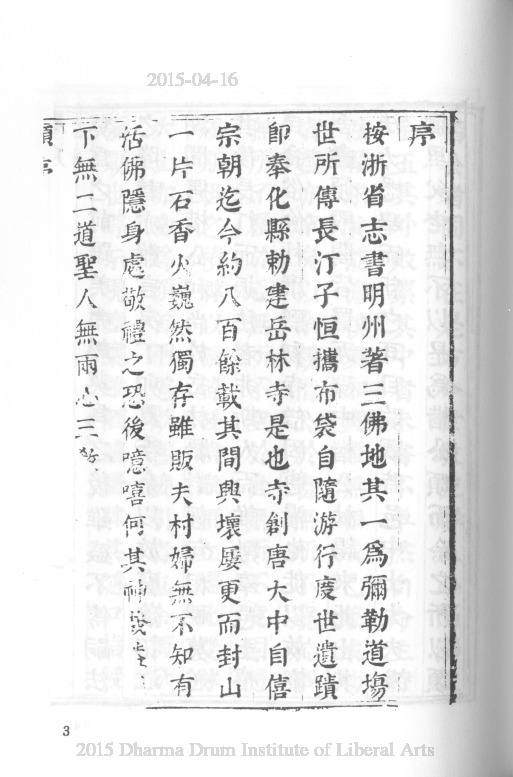 2015-04-16
序
按浙省志書明州著三佛地其一爲彌勒道場
世所傳長汀子恒攜布袋自隨游行度世遺蹟
卽奉化縣勅建岳林寺是也寺創唐大中自僖
宗朝迄今約八百餘載其間興壞屢更而封山
一片石香火巍然獨存雖販夫村婦無不知有
活佛隱身處敬禮之恐後噫嘻何其神
下無二道聖人無兩心三
序
3
2015 Dharma Drum Institute of Liberal Arts